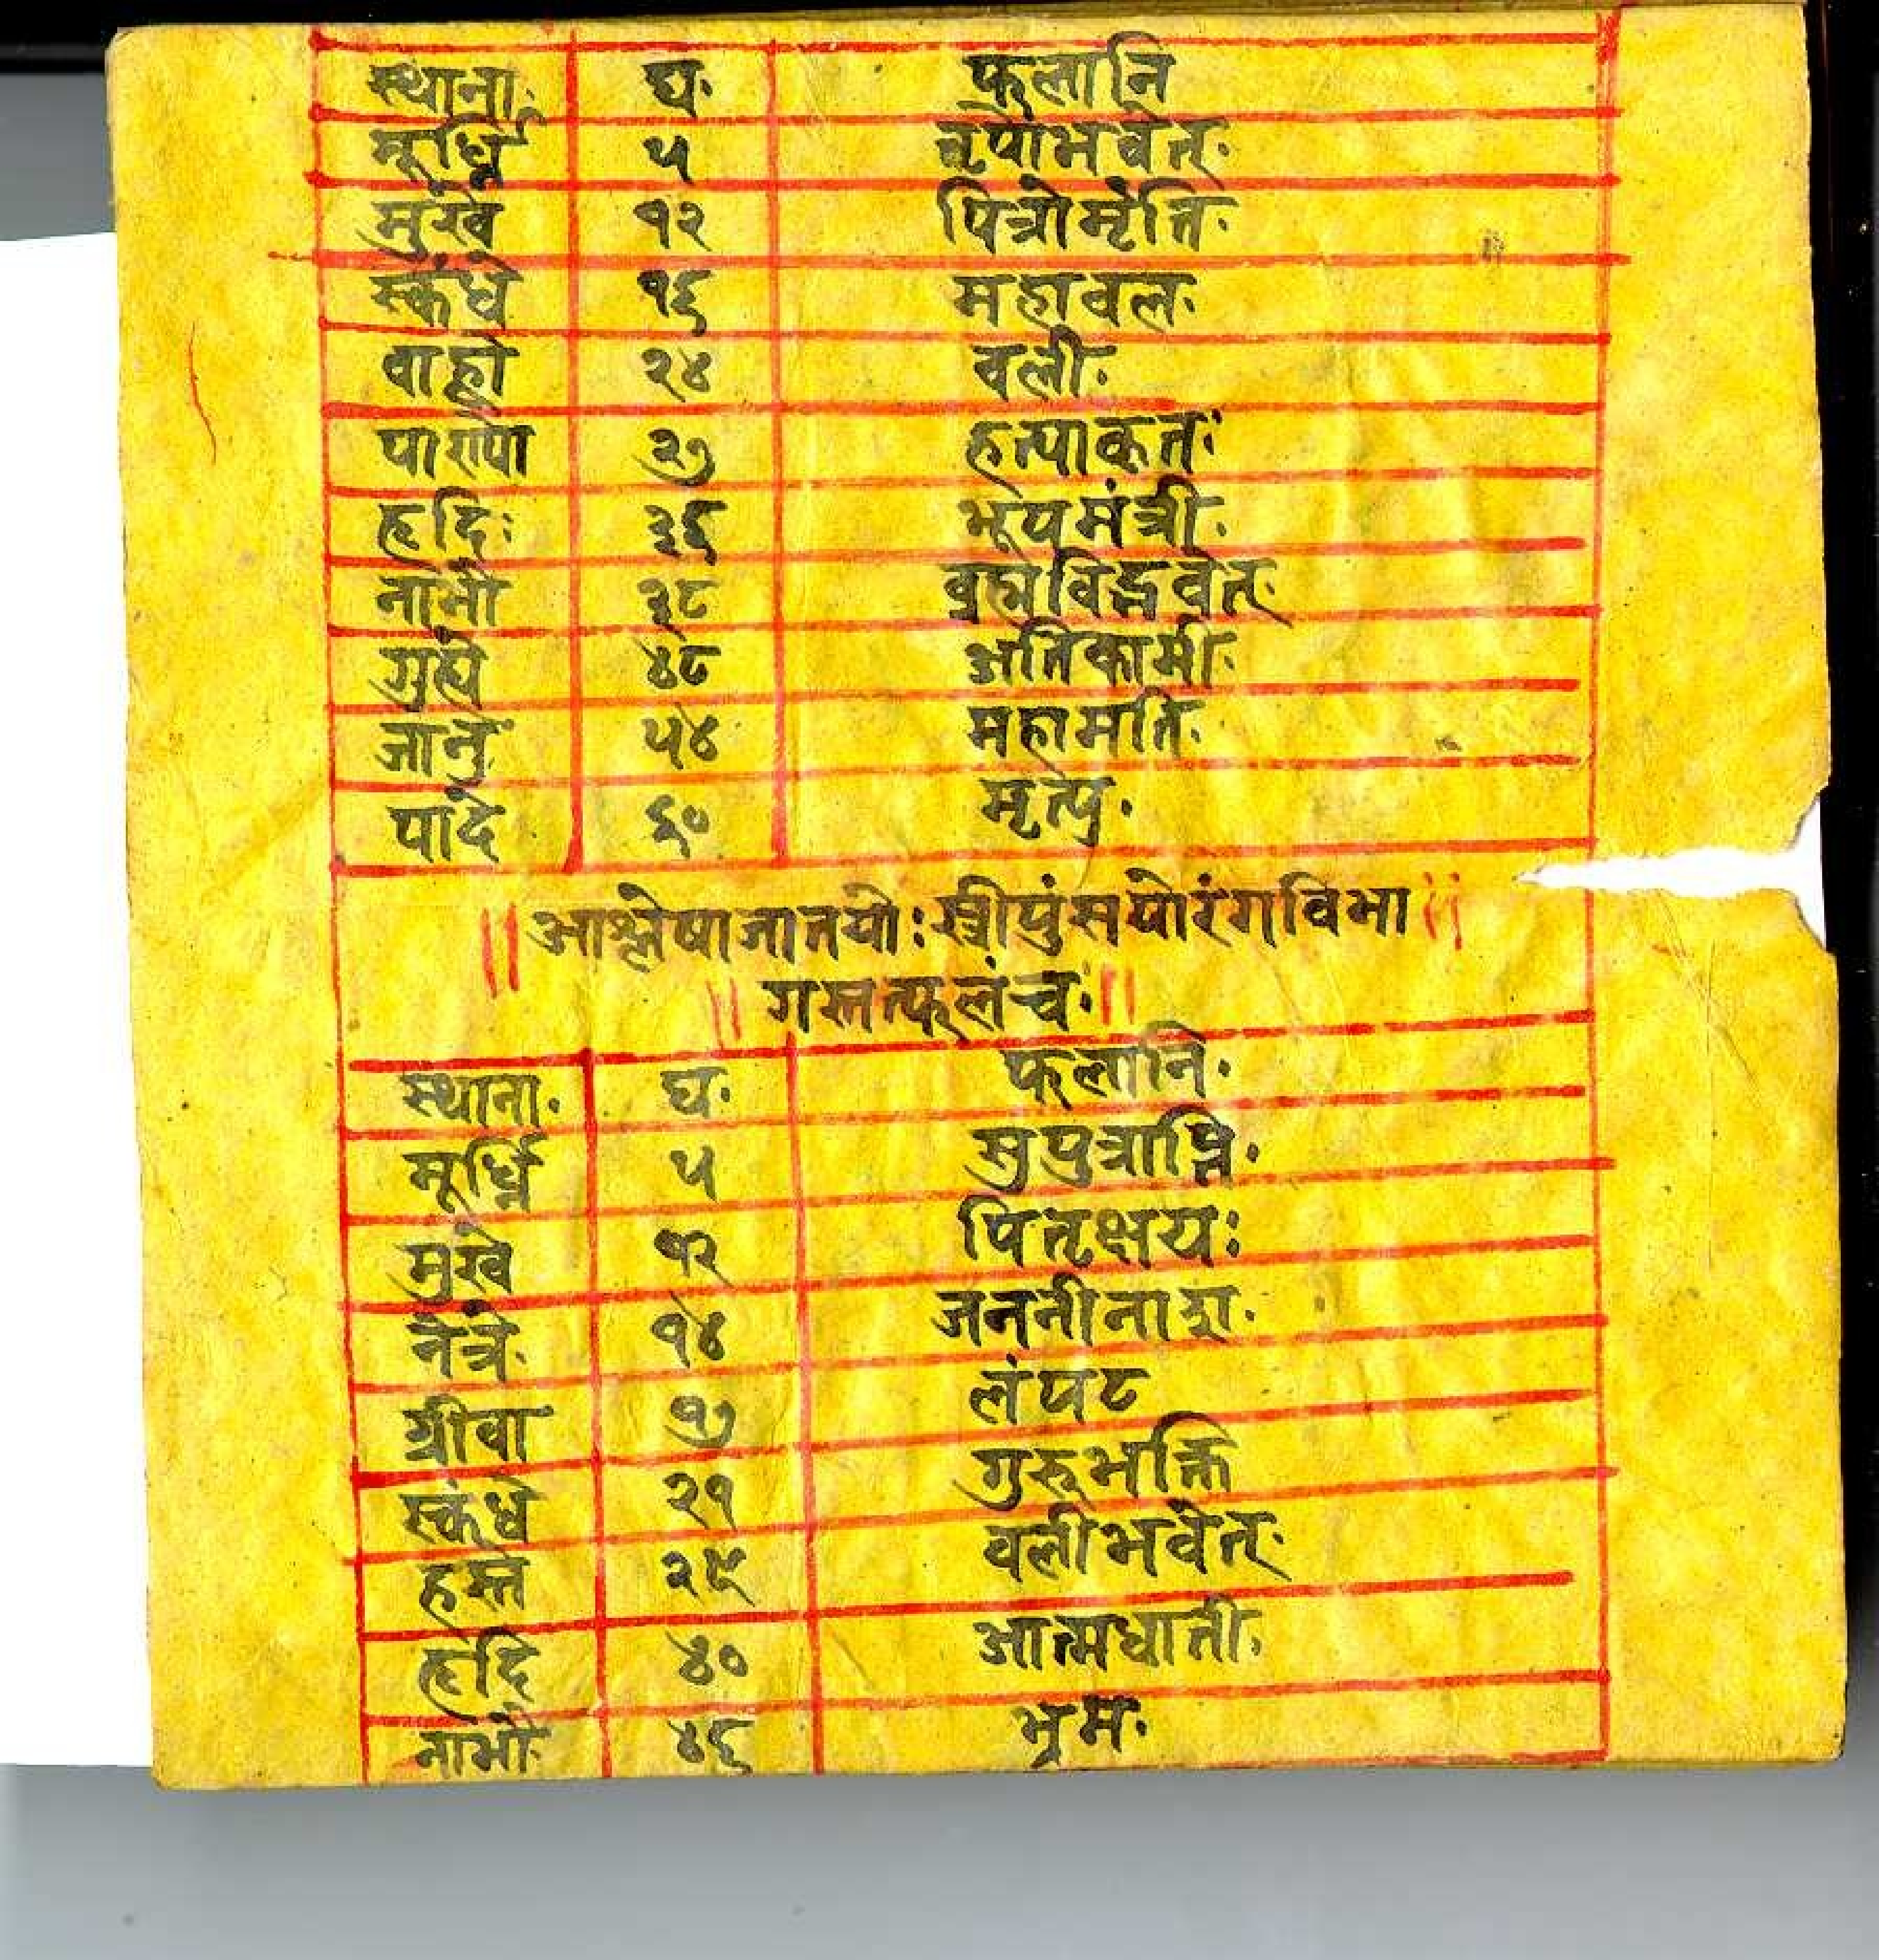 स्थाना. घ. फलानि
मूर्ध्नि ५ नृपोभवेत्.
मुखे १२ पित्रोर्मृति.
स्कंधे १६ महावल.
वाह्वो २४ वली.
पाराया २७ हत्याकृत.
हृदि: ३६ भूपमंत्री.
नाभौ ३८ व्रह्मविद्भवेत्.
गुह्ये ४८ अतिकामी.
जानु ५४ महामति.
पादे ६० मृत्यु.
॥ आश्लेषाजातयो: स्त्रीपुंसयोरंगविभा ॥
॥ गस्तत्फलंच. ॥
स्थाना. घ. फलानि.
मूर्ध्नि ५ सुपुत्राप्ति.
मुखे १२ पितृक्षय:
नेत्रे. १४ जननीनाश.
ग्रीवा १७ लंपट
स्कंधे २१ गुरुभक्ति
हस्ते २९ वलीभवेत्.
हृदि ४० आत्मघाती.
नाभौ. ४६ भ्रम.